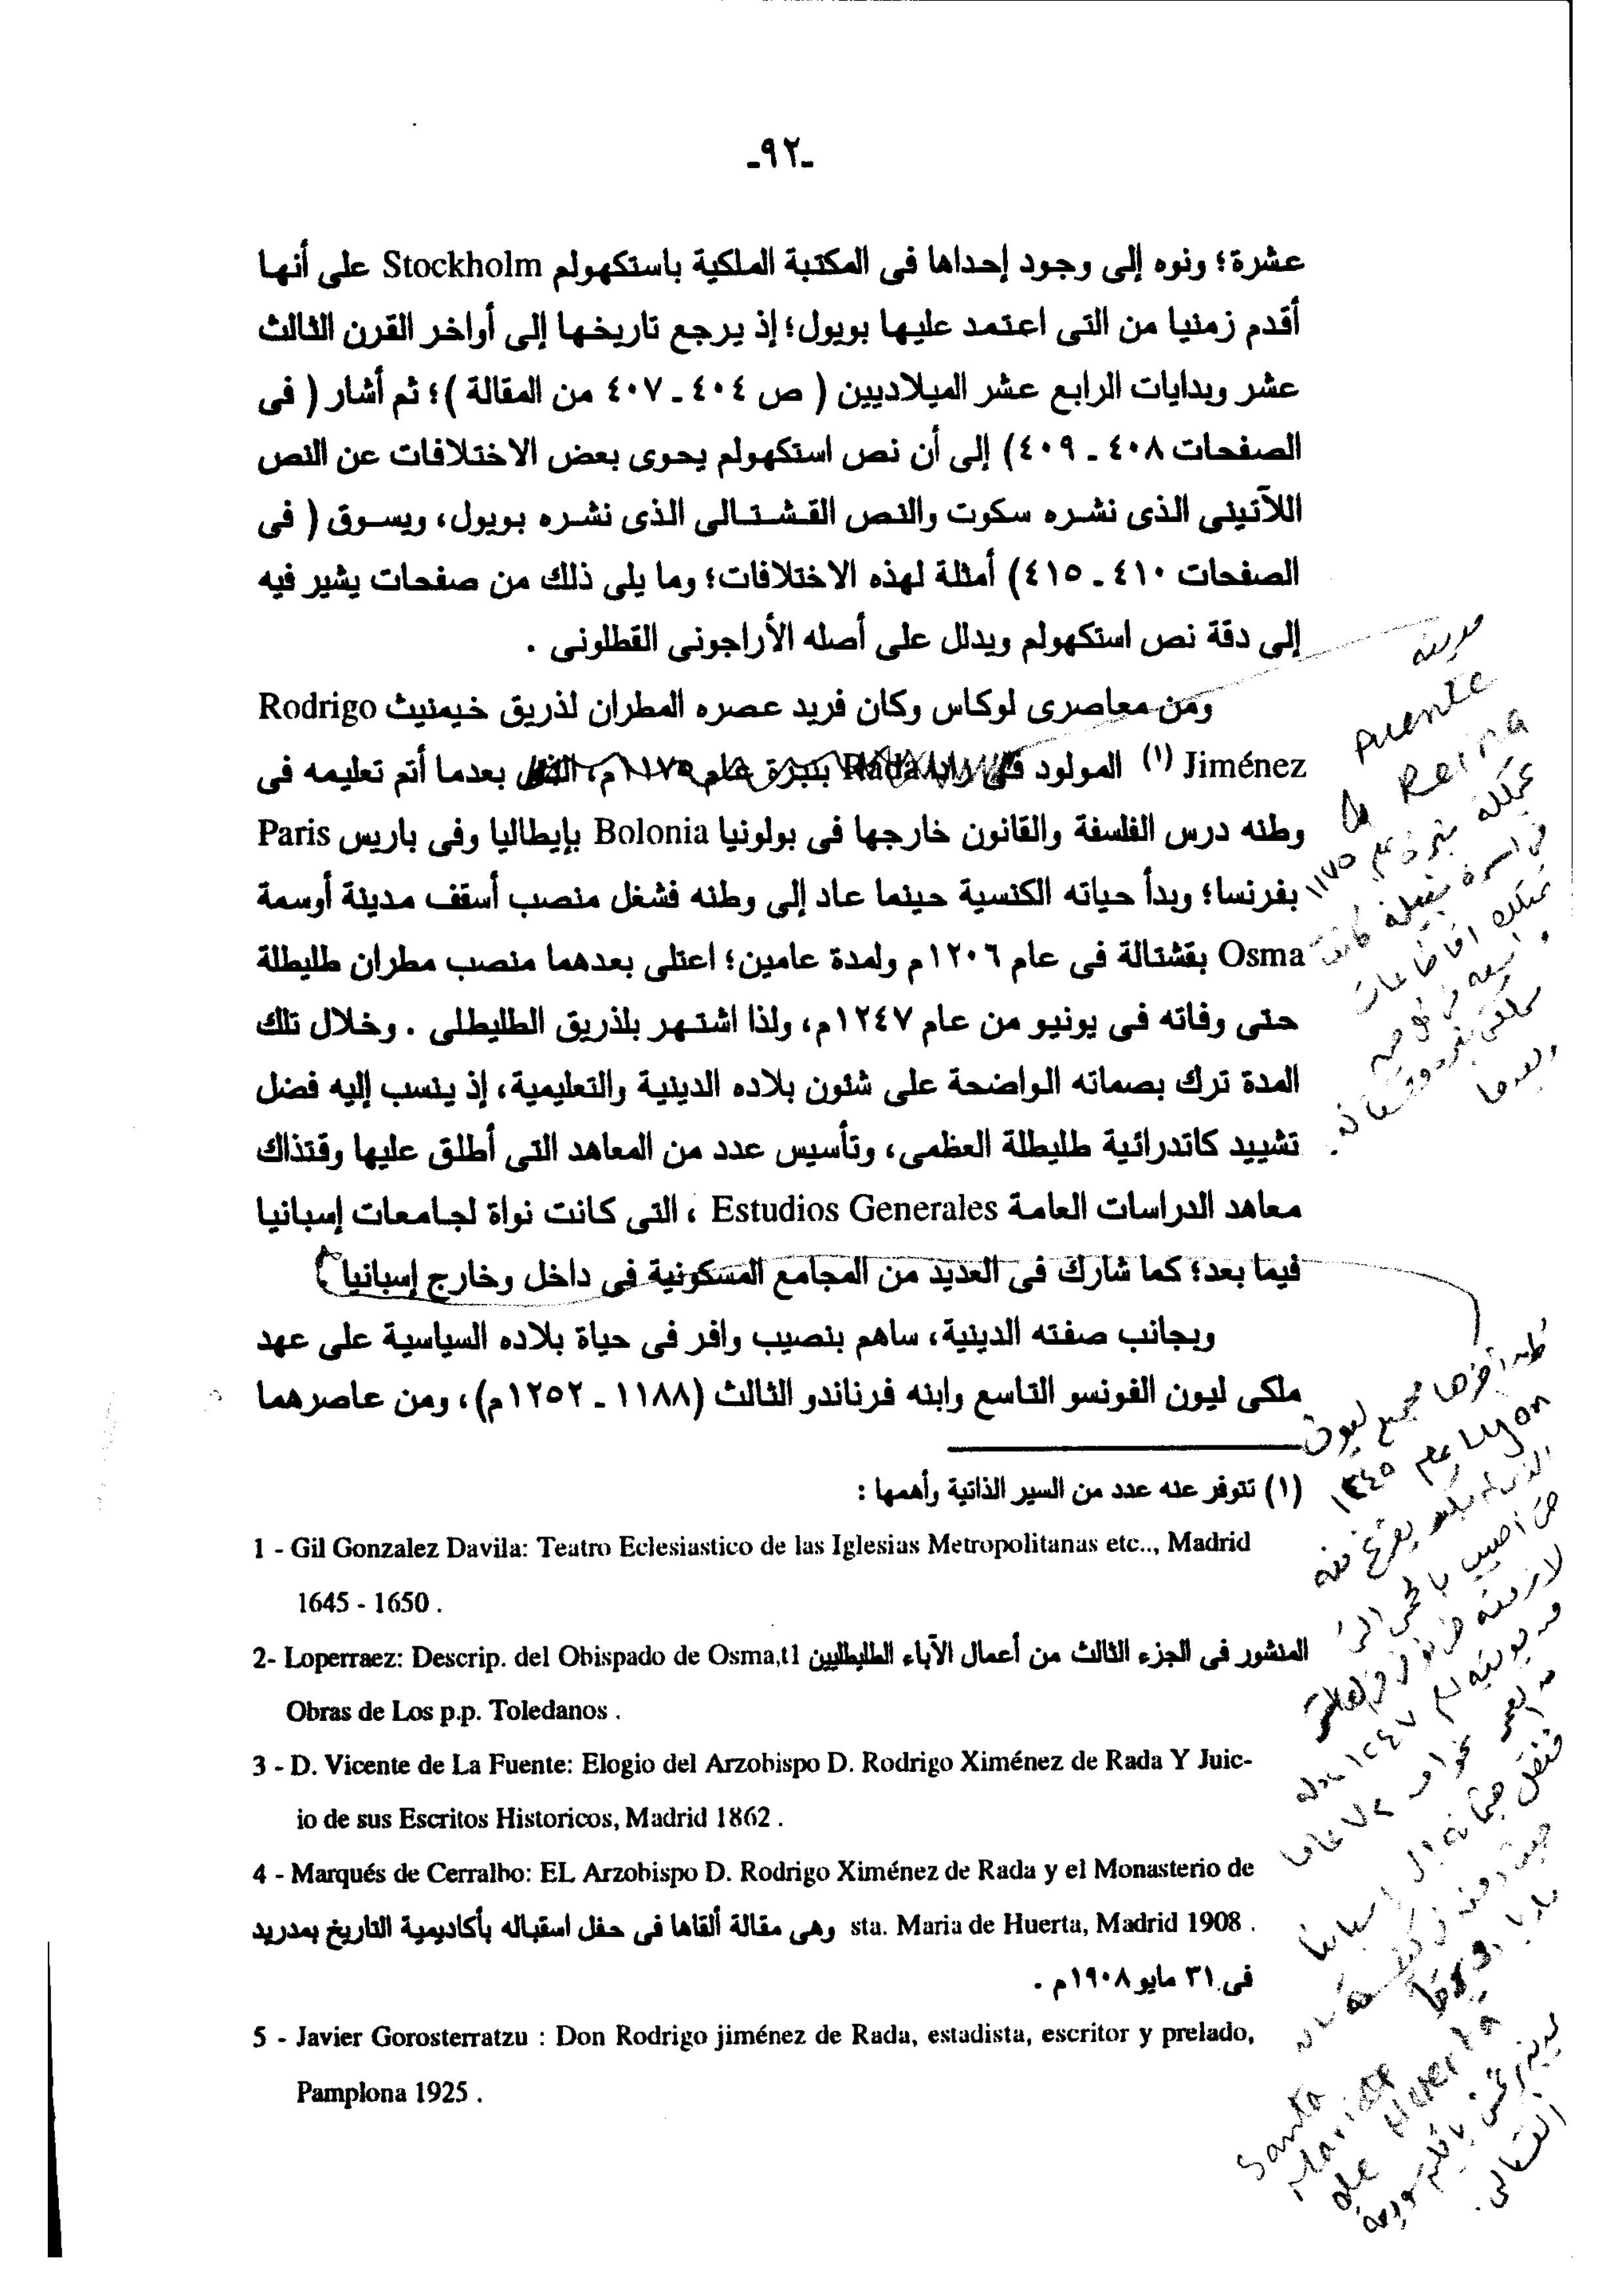 -٩٢-
عشرة؛ ونوه إلى وجود إحداها فى المكتبة الملكية باستكهولم Stockholm على أنها
أقدم زمنيا من التى اعتمد عليها بويول؛ إذ يرجع تاريخها إلى أواخر القرن الثالث
عشر وبدايات الرابع عشر الميلاديين ( ص ٤٠٤ ـ ٤٠٧ من المقالة )؛ ثم أشار ( فى
الصفحات ٤٠٨ ـ ٤٠٩) إلى أن نص استكهولم يحوى بعض الاختلافات عن النص
اللآتينى الذى نشره سكوت والنص القشتالى الذى نشره بويول، ويسوق ( فى
الصفحات ٤١٠ ـ ٤١٥) أمثلة لهذه الاختلافات؛ وما يلى ذلك من صفحات يشير فيه
إلى دقة نص استكهولم ويدلل على أصله الأراجونى القطلونى .
ومن معاصرى لوكاس وكان فريد عصره المطران لذريق خيمنيث Rodrigo
Jiménez (١) المولود فى رادا Rada بنبرة عام ١١٧٥م، بعدما أتم تعليمه فى
وطنه درس الفلسفة والقانون خارجها فى بولونيا Bolonia بإيطاليا وفى باريس Paris
بفرنسا؛ وبدأ حياته الكنسية حينما عاد إلى وطنه فشغل منصب أسقف مدينة أوسمة
Osma بقشتالة فى عام ١٢٠٦م ولمدة عامين؛ اعتلى بعدهما منصب مطران طليطلة
حتى وفاته فى يونيو من عام ١٢٤٧م، ولذا اشتهر بلذريق الطليطلى . وخلال تلك
المدة ترك بصماته الواضحة على شئون بلاده الدينية والتعليمية، إذ ينسب إليه فضل
تشييد كاتدرائية طليطلة العظمى، وتأسيس عدد من المعاهد التى أطلق عليها وقتذاك
معاهد الدراسات العامة Estudios Generales ، التى كانت نواة لجامعات إسبانيا
فيما بعد؛ كما شارك فى العديد من المجامع المسكونية فى داخل وخارج إسبانيا
وبجانب صفته الدينية، ساهم بنصيب وافر فى حياة بلاده السياسية على عهد
ملكى ليون الفونسو التاسع وابنه فرناندو الثالث (١١٨٨ ـ ١٢٥٢م)، ومن عاصرهما
(١) تتوفر عنه عدد من السير الذاتية وأهمها :
1 - Gil Gonzalez Davila: Teatro Eclesiastico de las Iglesias Metropolitanas etc.., Madrid
1645 - 1650 .
2- Loperraez: Descrip. del Obispado de Osma,t1 المنشور فى الجزء الثالث من أعمال الآباء الطليطليين
Obras de Los p.p. Toledanos .
3 - D. Vicente de La Fuente: Elogio del Arzobispo D. Rodrigo Ximénez de Rada Y Juic-
io de sus Escritos Historicos, Madrid 1862 .
4 - Marqués de Cerralbo: EL Arzobispo D. Rodrigo Ximénez de Rada y el Monasterio de
sta. Maria de Huerta, Madrid 1908 . وهى مقالة ألقاها فى حفل استقباله بأكاديمية التاريخ بمدريد
فى ٣١ مايو ١٩٠٨م .
5 - Javier Gorosterratzu : Don Rodrigo jiménez de Rada, estadista, escritor y prelado,
Pamplona 1925 .
مدينة
Puente
la Reina
بمملكة نبرة عام ١١٧٥
فى أسرة نبيلة كانت
تمتلك اقطاعات
وبعدما
مجمع ليون
Lyon عام ١٢٤٥
Santa
Maria
de Huerta